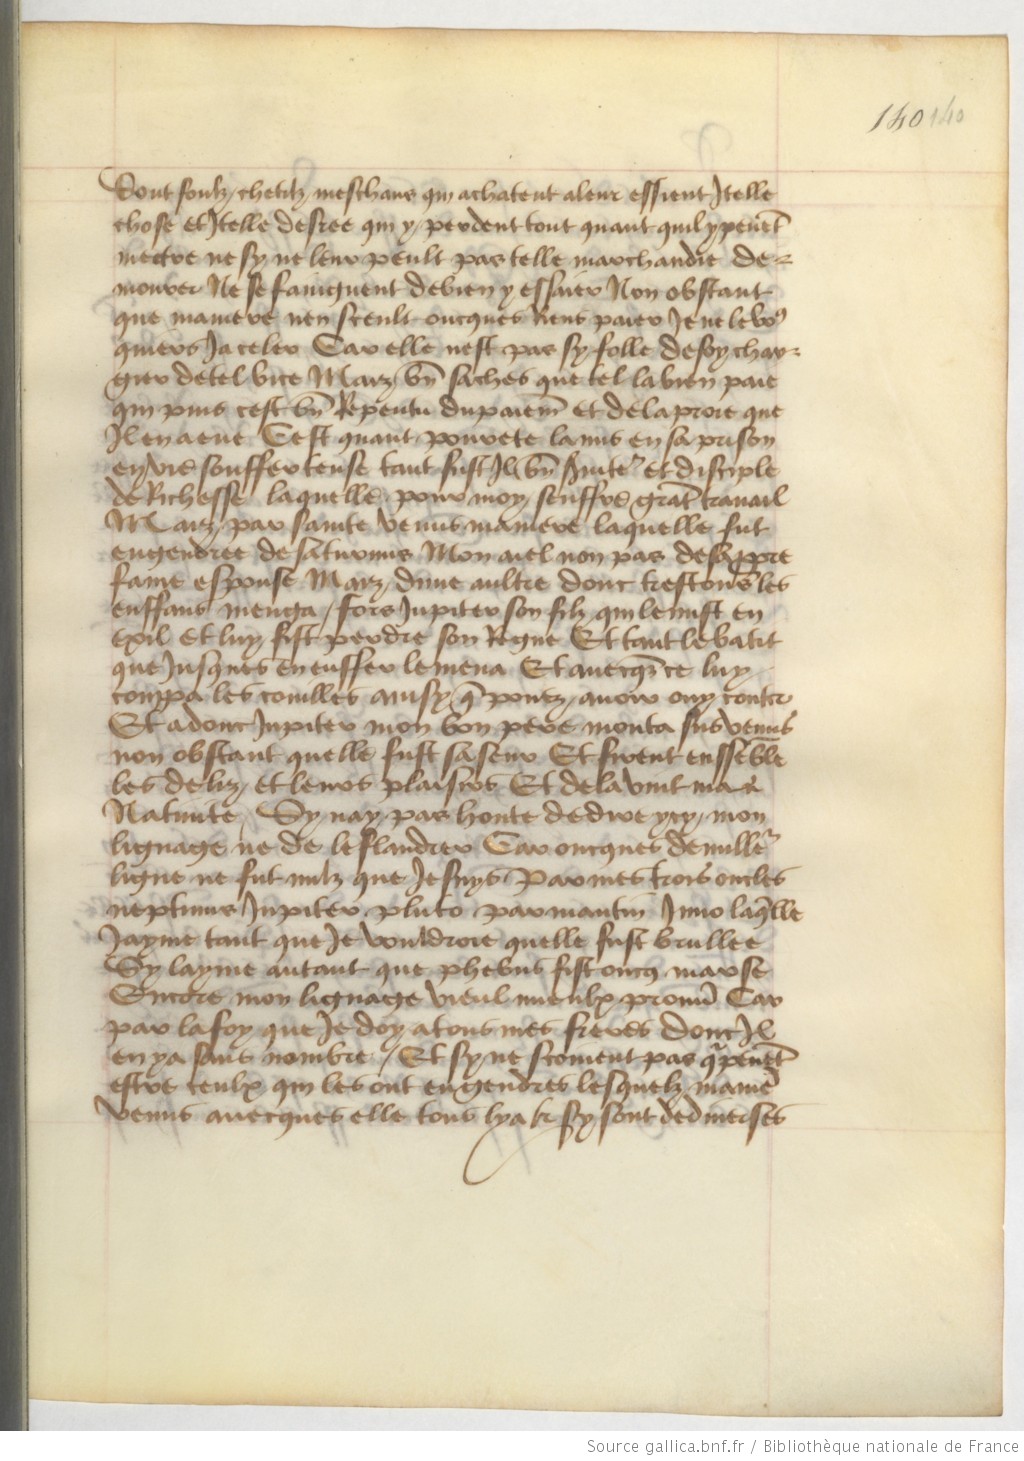 140 140
Dont foulz chetilz meschans qui achatent a leur essient Itelle
chose et Itelle desree qui y perdent tout quant quil y peuēt
mectre ne sy ne leur peult pas telle marchandie de-
mourer Ne se faingnent de bien y essaier Non obstant
que ma mere nen sceult oncques Riens paier Je ne le
quiers Ja celer Car elle nest pas sy folle de soy char-
gier de tel vice Maiz bn̄ saches que tel la bien paie
qui puis cest bn̄ Repentu du paiem̄ et de la proie que
Il en a eue Cest quant pourete la mis en sa prison
en vie souffreteuse tant fust Il bn̄ et disciple
de Richesse laquelle pour moy seuffre grāt trauail
Maiz par sainte venus ma mere laquelle fut
engendree de saturnus Mon aiel non pas de sa ppre
fame espouse Maiz dune aultre donc trestous les
enffans menga / fors Jupiter son filz qui le mist en
exil Et luy fist perdre son Regne Et tant le batit
que Jusques en enffer le mena Et auecq̄s ce luy
couppa les couilles ainsy q̄ pouez auoir ouy conter
Et adonc Jupiter mon bon pere monta sus venus
non obstant quelle fust sa seur Et firent enssēble
les deliz et leurs plaisirs Et de la vint ma
Natiuite Sy nay pas honte de dire ycy mon
lignage ne de lesclandrer Car oncques de nulle
ligne ne fut nulz que Je suys Par mes trois oncles
neptunus Jupiter pluto par mantin Juno laq̄lle
Jayme tant que Je vouldroie quelle fust brullee
Sy layme autant que phebus fist oncq marse
Encore mon lignage vieul mieulx Car
par la foy que Je doy a tous mes freres donc Il
en y a sans nombre / Et sy ne sceuent pas q̄ peuēt
estre ceulx qui les ont engendres lesquelz ma mē
venus auecques elle tous lya Et sy sont de diuerses
Source gallica.bnf.fr / Bibliothèque nationale de France